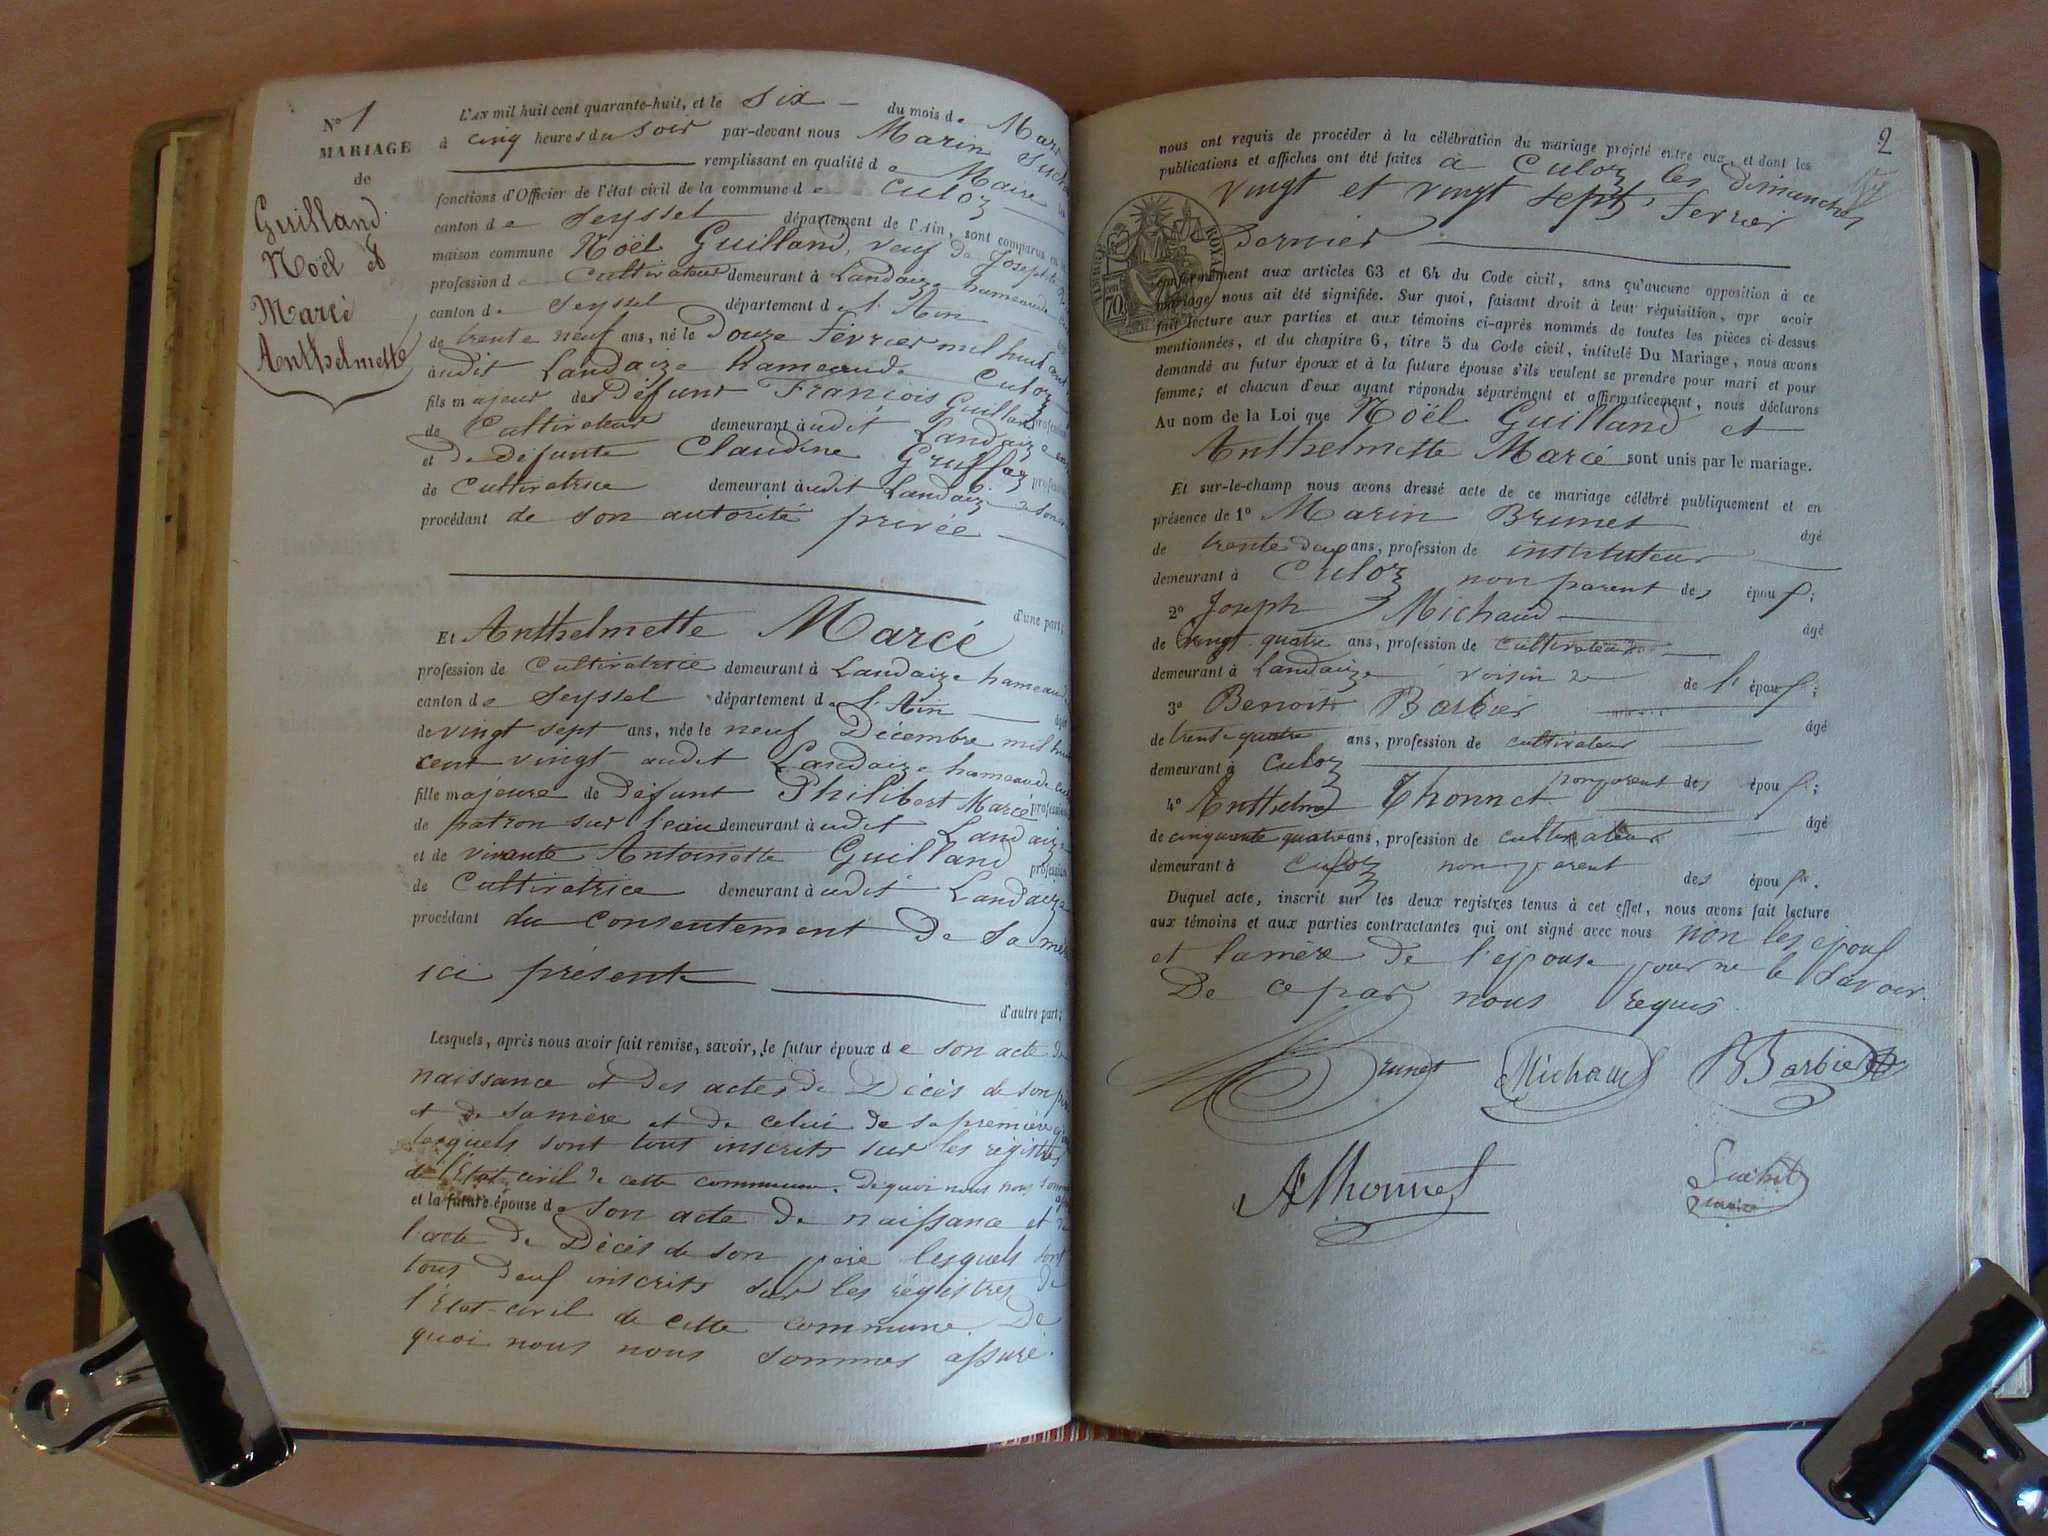 N° 1
MARIAGE
de
Guilland
Noël et
Marcé
Anthelmette
L'AN mil huit cent quarante-huit, et le six du mois de Mars
à cinq heures du soir par-devant nous Marin
remplissant en qualité de Maire
fonctions d'Officier de l'état civil de la commune de Culoz
canton de Seyssel département de l'Ain, sont comparus en la
maison commune Noël Guilland, veuf de Josephte
profession de Cultivateur demeurant à Landaize hameau de
canton de Seyssel département de l'Ain
de trente neuf ans, né le Douze Février mil huit cent
àudit Landaize hameau de Culoz
fils majeur de Défunt François Guilland profession
de Cultivateur demeurant àudit Landaize
et de défunte Claudine Gruffaz profession
de Cultivatrice demeurant àudit Landaize
procédant de son autorité privée
d'une part;
Et Anthelmette Marcé
profession de Cultivatrice demeurant à Landaize hameau
canton de Seyssel département de l'Ain âgée
de vingt sept ans, née le neuf Décembre mil huit
cent vingt audit Landaize hameau de
fille majeure de Défunt Philibert Marcé profession
de patron sur l'eau demeurant àudit Landaize
et de vivante Antoinette Guilland profession
de Cultivatrice demeurant àudit Landaize
procédant du consentement de sa mère
ici présente
d'autre part;
Lesquels, après nous avoir fait remise, savoir, le futur époux de son acte de
naissance et des actes de Décès de son père
et de sa mère et de celui de sa première
lesquels sont tous inscrits sur les régistres
de l'Etat-civil de cette commune. De quoi nous nous sommes
et la future épouse de son acte de naissance et de
l'acte de Décès de son père lesquels sont
tous deux inscrits sur les régistres de
l'Etat-civil de cette commune. De
quoi nous nous sommes assuré.
2
nous ont requis de procéder à la célébration du mariage projeté entre eux, et dont les
publications et affiches ont été faites à Culoz les dimanches
vingt et vingt sept Fevrier
Dernier
TIMBRE ROYAL
70
conformément aux articles 63 et 64 du Code civil, sans qu'aucune opposition à ce
mariage nous ait été signifiée. Sur quoi, faisant droit à leur réquisition, apr avoir
fait lecture aux parties et aux témoins ci-après nommés de toutes les pièces ci-dessus
mentionnées, et du chapitre 6, titre 5 du Code civil, intitulé Du Mariage, nous avons
demandé au futur époux et à la future épouse s'ils veulent se prendre pour mari et pour
femme; et chacun d'eux ayant répondu séparément et affirmativement, nous déclarons
Au nom de la Loi que Noël Guilland et
Anthelmette Marcé sont unis par le mariage.
Et sur-le-champ nous avons dressé acte de ce mariage célébré publiquement et en
présence de 1° Marin Brunet âgé
de trente deux ans, profession de instituteur
demeurant à Culoz non parent des époux;
2° Joseph Michaud âgé
de vingt quatre ans, profession de cultivateur
demeurant à Landaize voisin de l'époux;
3° Benoit Barbier âgé
de trente quatre ans, profession de cultivateur
demeurant à Culoz non parent des époux;
4° Anthelme Thonnet âgé
de cinquante quatre ans, profession de cultivateur
demeurant à Culoz non parent des époux.
Duquel acte, inscrit sur les deux registres tenus à cet effet, nous avons fait lecture
aux témoins et aux parties contractantes qui ont signé avec nous non les époux
et la mère de l'épouse pour ne le savoir.
De ce par nous requis
Brunet Michaud B Barbier
A Thonnet